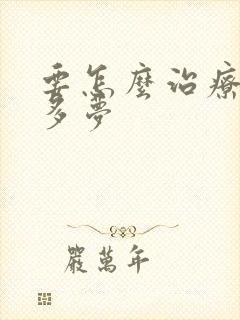 要怎麼治療
多夢
嚴萬年